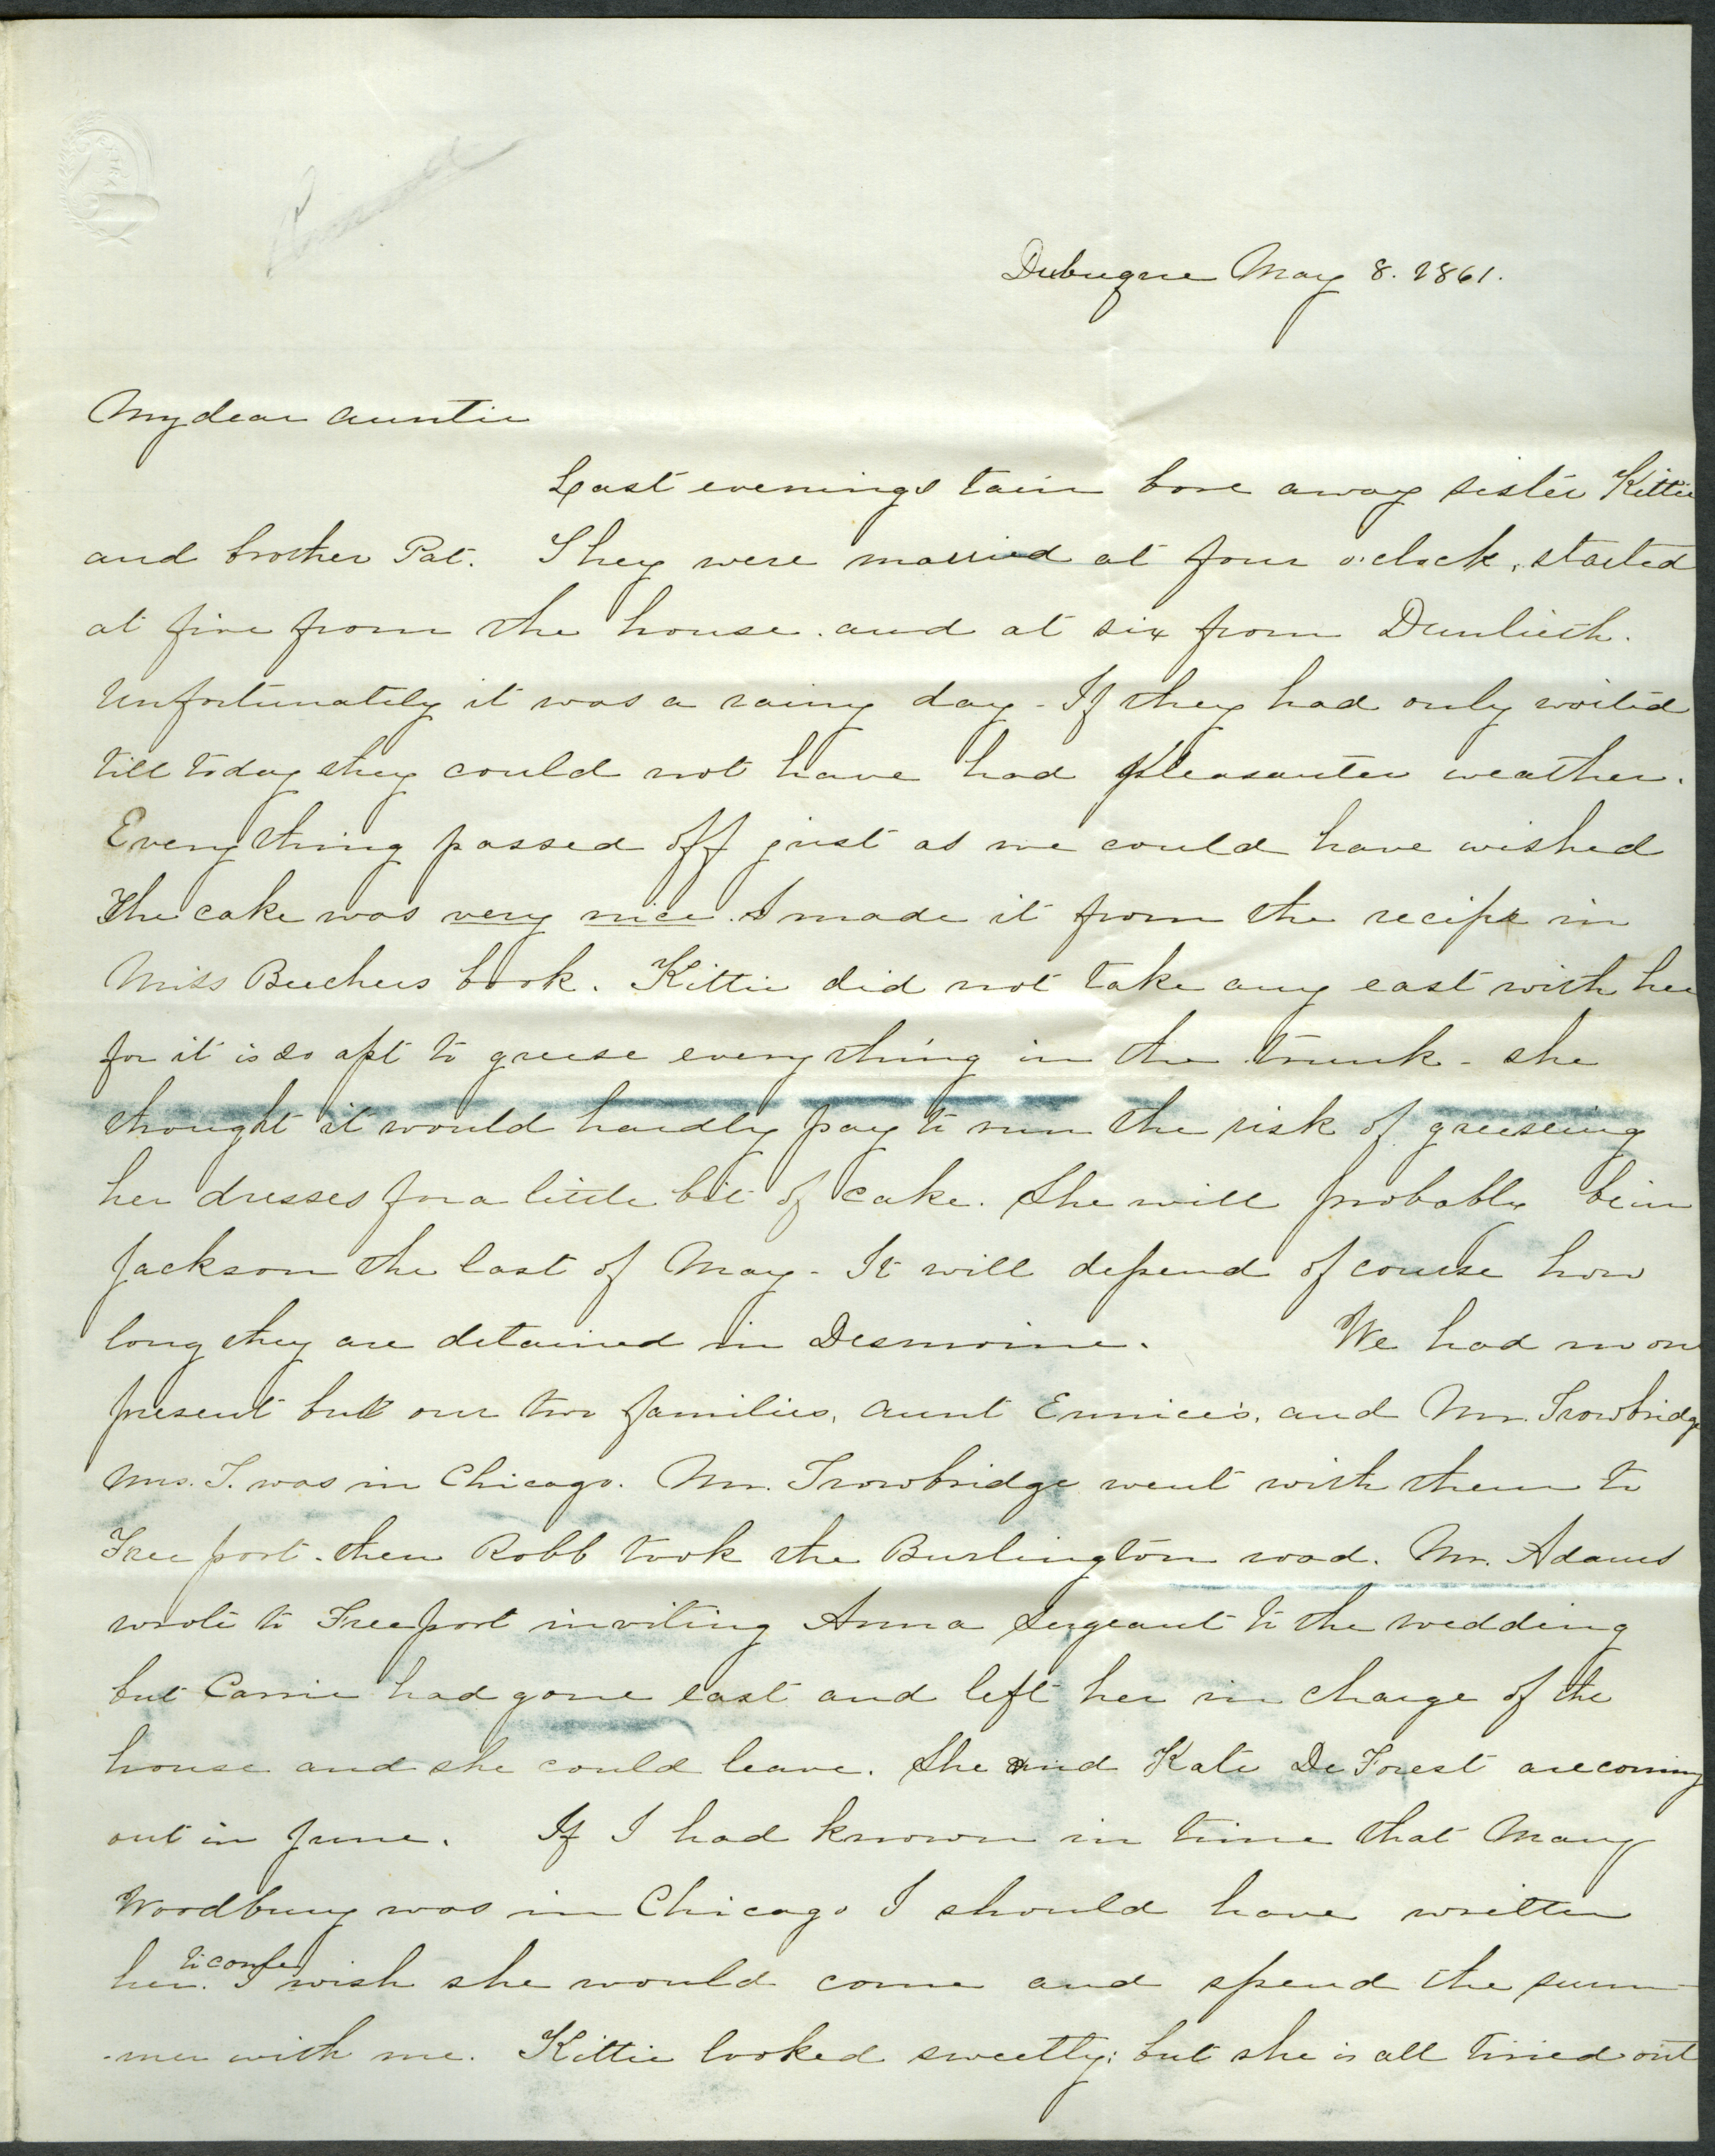 Dubuque May 8. 1861.
My dear Auntie
Last evenings tain bore away sister Kittie
and brother Pat. They were married at four o'clock, started
at five from the house. and at six from Dunlieth.
Unfortunately it was a rainy day - If they had only waited
till today they could not have had pleasanter weather.
Everything passed off just as we could have wished
The cake was very nice. I made it from the recipe in
Miss Beechers book. Kittie did not take any east with her
for it is so apt to greese everything in the trunk - she
thought it would hardly pay to run the risk of greeseing
her dresses for a little bit of cake. She will probably be in
Jackson the last of May - It will depend of course how
long they are detained in Desmoine. We had no one
present but our two families, Aunt Eunice's, and Mr. Trowbridge
Mrs. T. was in Chicago. Mr. Trowbridge went with them to
Freeport. then Robb took the Burlington road. Mr. Adams
wrote to Freeport inviting Anna Sergeant to the wedding
but Carrie had gone east and left her in charge of the
house and she could leave. She and Kate De Forest are coming
out in June. If I had known in time that Mary
Woodbury was in Chicago I should have written
her to come. I wish she would come and spend the sum-
-mer with me. Kittie looked sweetly; but she is all tired out